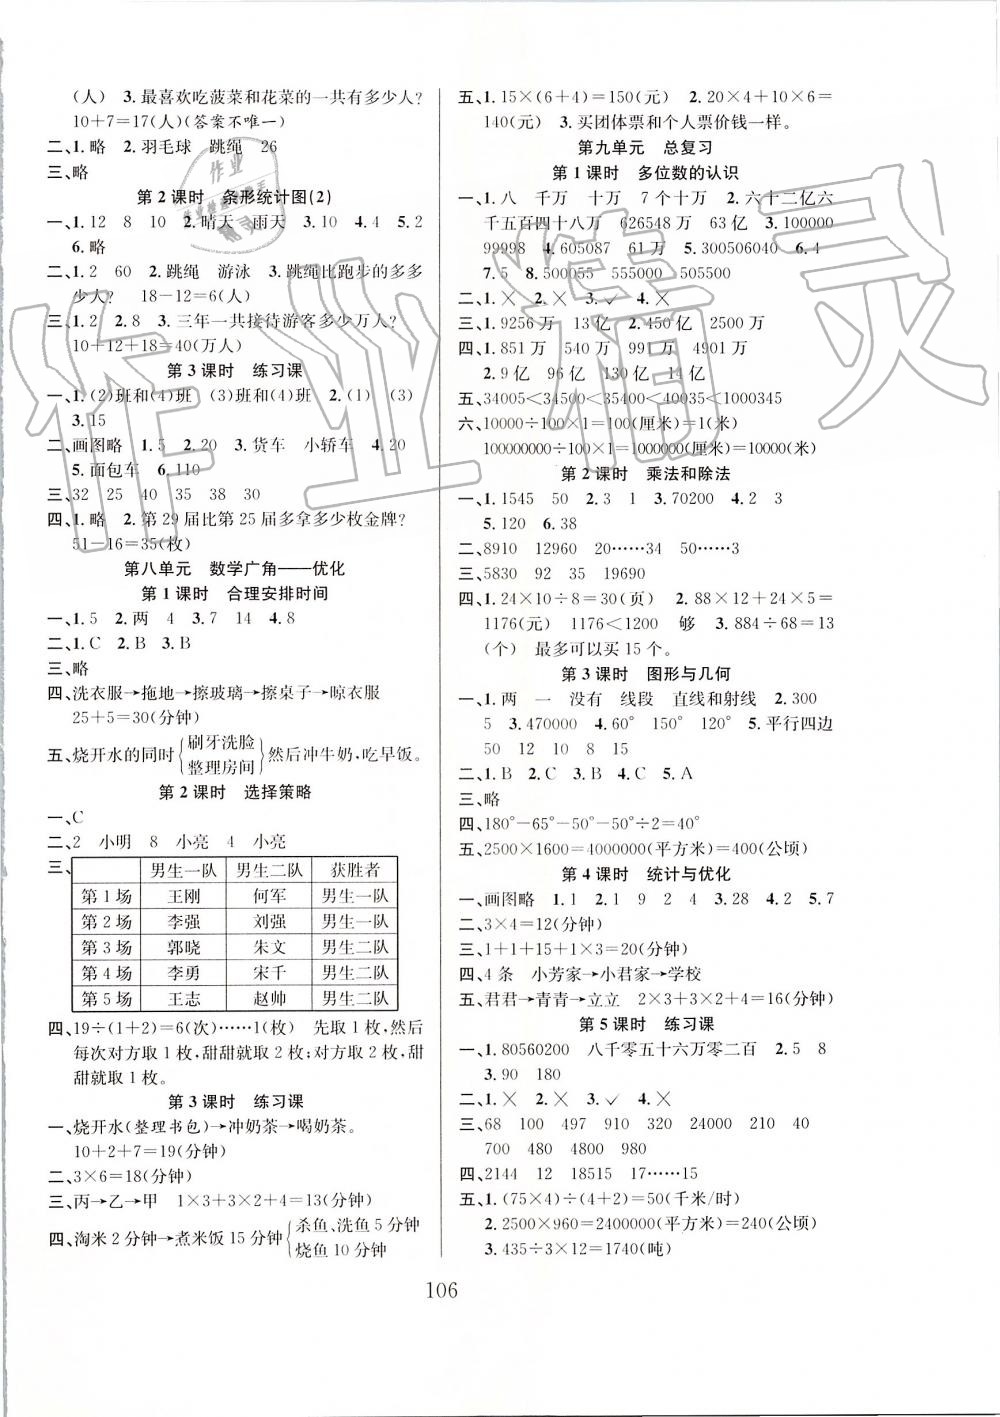 (人)　3.最喜欢吃菠菜和花菜的一共有多少人?
10+7=17(人)(答案不唯一)
二、1.略　2.羽毛球　跳绳　26
三、略
第 2 课时　条形统计图(2)
一、1.12　8　10　2.晴天　雨天　3.10　4.4　5.2
6.略
二、1.2　60　2.跳绳　游泳　3.跳绳比跑步的多多
少人?　18-12=6(人)
三、1.2　2.8　3.三年一共接待游客多少万人?
10+12+18=40(万人)
第 3 课时　练习课
一、1.(2)班和(4)班　(3)班和(1)班　2.(1)　(3)
3.15
二、画图略　1.5　2.20　3.货车　小轿车　4.20
5.面包车　6.110
三、32　25　40　35　38　30
四、1.略　2.第 29 届比第 25 届多拿多少枚金牌?
51-16=35(枚)
第八单元　数学广角——优化
第 1 课时　合理安排时间
一、1.5　2.两　4　3.7　14　4.8
二、1.C　2.B　3.B
三、略
四、洗衣服→拖地→擦玻璃→擦桌子→晾衣服
25+5=30(分钟)
五、烧开水的同时{刷牙洗脸 整理房间}然后冲牛奶,吃早饭。
第 2 课时　选择策略
一、C
二、2　小明　8　小亮　4　小亮
三、
男生一队　男生二队　获胜者
第 1 场　王刚　何军　男生一队
第 2 场　李强　刘强　男生一队
第 3 场　郭晓　朱文　男生二队
第 4 场　李勇　宋千　男生二队
第 5 场　王志　赵帅　男生二队
四、19÷(1+2)=6(次)……1(枚)　先取 1 枚,然后
每次对方取 1 枚,甜甜就取 2 枚;对方取 2 枚,甜
甜就取 1 枚。
第 3 课时　练习课
一、烧开水(整理书包)→冲奶茶→喝奶茶。
10+2+7=19(分钟)
二、3×6=18(分钟)
三、丙→乙→甲　1×3+3×2+4=13(分钟)
四、淘米 2 分钟→煮米饭 15 分钟{杀鱼、洗鱼 5 分钟 烧鱼 10 分钟
五、1.15×(6+4)=150(元)　2.20×4+10×6=
140(元)　3.买团体票和个人票价钱一样。
第九单元　总复习
第 1 课时　多位数的认识
一、1.八　千万　十万　7 个十万　2.六十二亿六
千五百四十八万　626548万　63亿　3.100000
99998　4.605087　61万　5.300506040　6.4
7.5　8.500055　555000　505500
二、1.×　2.×　3.✓　4.×
三、1.9256万　13亿　2.450亿　2500万
四、1.851万　540万　990万　4901万
2.9亿　96亿　130亿　14亿
五、34005<34500<35400<40035<1000345
六、10000÷100×1=100(厘米)=1(米)
100000000÷100×1=1000000(厘米)=10000(米)
第 2 课时　乘法和除法
一、1.1545　50　2.3　1　3.70200　4.2　3
5.120　6.38
二、8910　12960　20……34　50……3
三、5830　92　35　19690
四、1.24×10÷8=30(页)　2.88×12+24×5=
1176(元)　1176<1200　够　3.884÷68=13
(个)　最多可以买 15 个。
第 3 课时　图形与几何
一、1.两　一　没有　线段　直线和射线　2.300
5　3.470000　4.60°　150°　120°　5.平行四边
50　12　10　8　15
二、1.B　2.B　3.C　4.C　5.A
三、略
四、180°-65°-50°-50°÷2=40°
五、2500×1600=4000000(平方米)=400(公顷)
第 4 课时　统计与优化
一、画图略　1.1　2.1　9　2　4　3.28　4.2　5.7
二、3×4=12(分钟)
三、1+1+15+1×3=20(分钟)
四、4 条　小芳家→小君家→学校
五、君君→青青→立立　2×3+3×2+4=16(分钟)
第 5 课时　练习课
一、1.80560200　八千零五十六万零二百　2.5　8
3.90　180
二、1.×　2.×　3.✓　4.×
三、68　100　497　910　320　210　40
700　480　4800　680
四、2144　12　18515　17……15
五、1.(75×4)÷(4+2)=50(千米/时)
2.2500×960=2400000(平方米)=240(公顷)
3.435÷3×12=1740(吨)
106
作业精灵